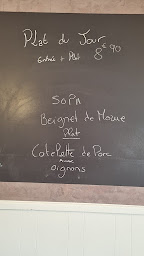 Plat du Jour
Entrée + Plat 8€90
SOPA
Beignet de Morue
Plat
Cotelette de Porc
oignons